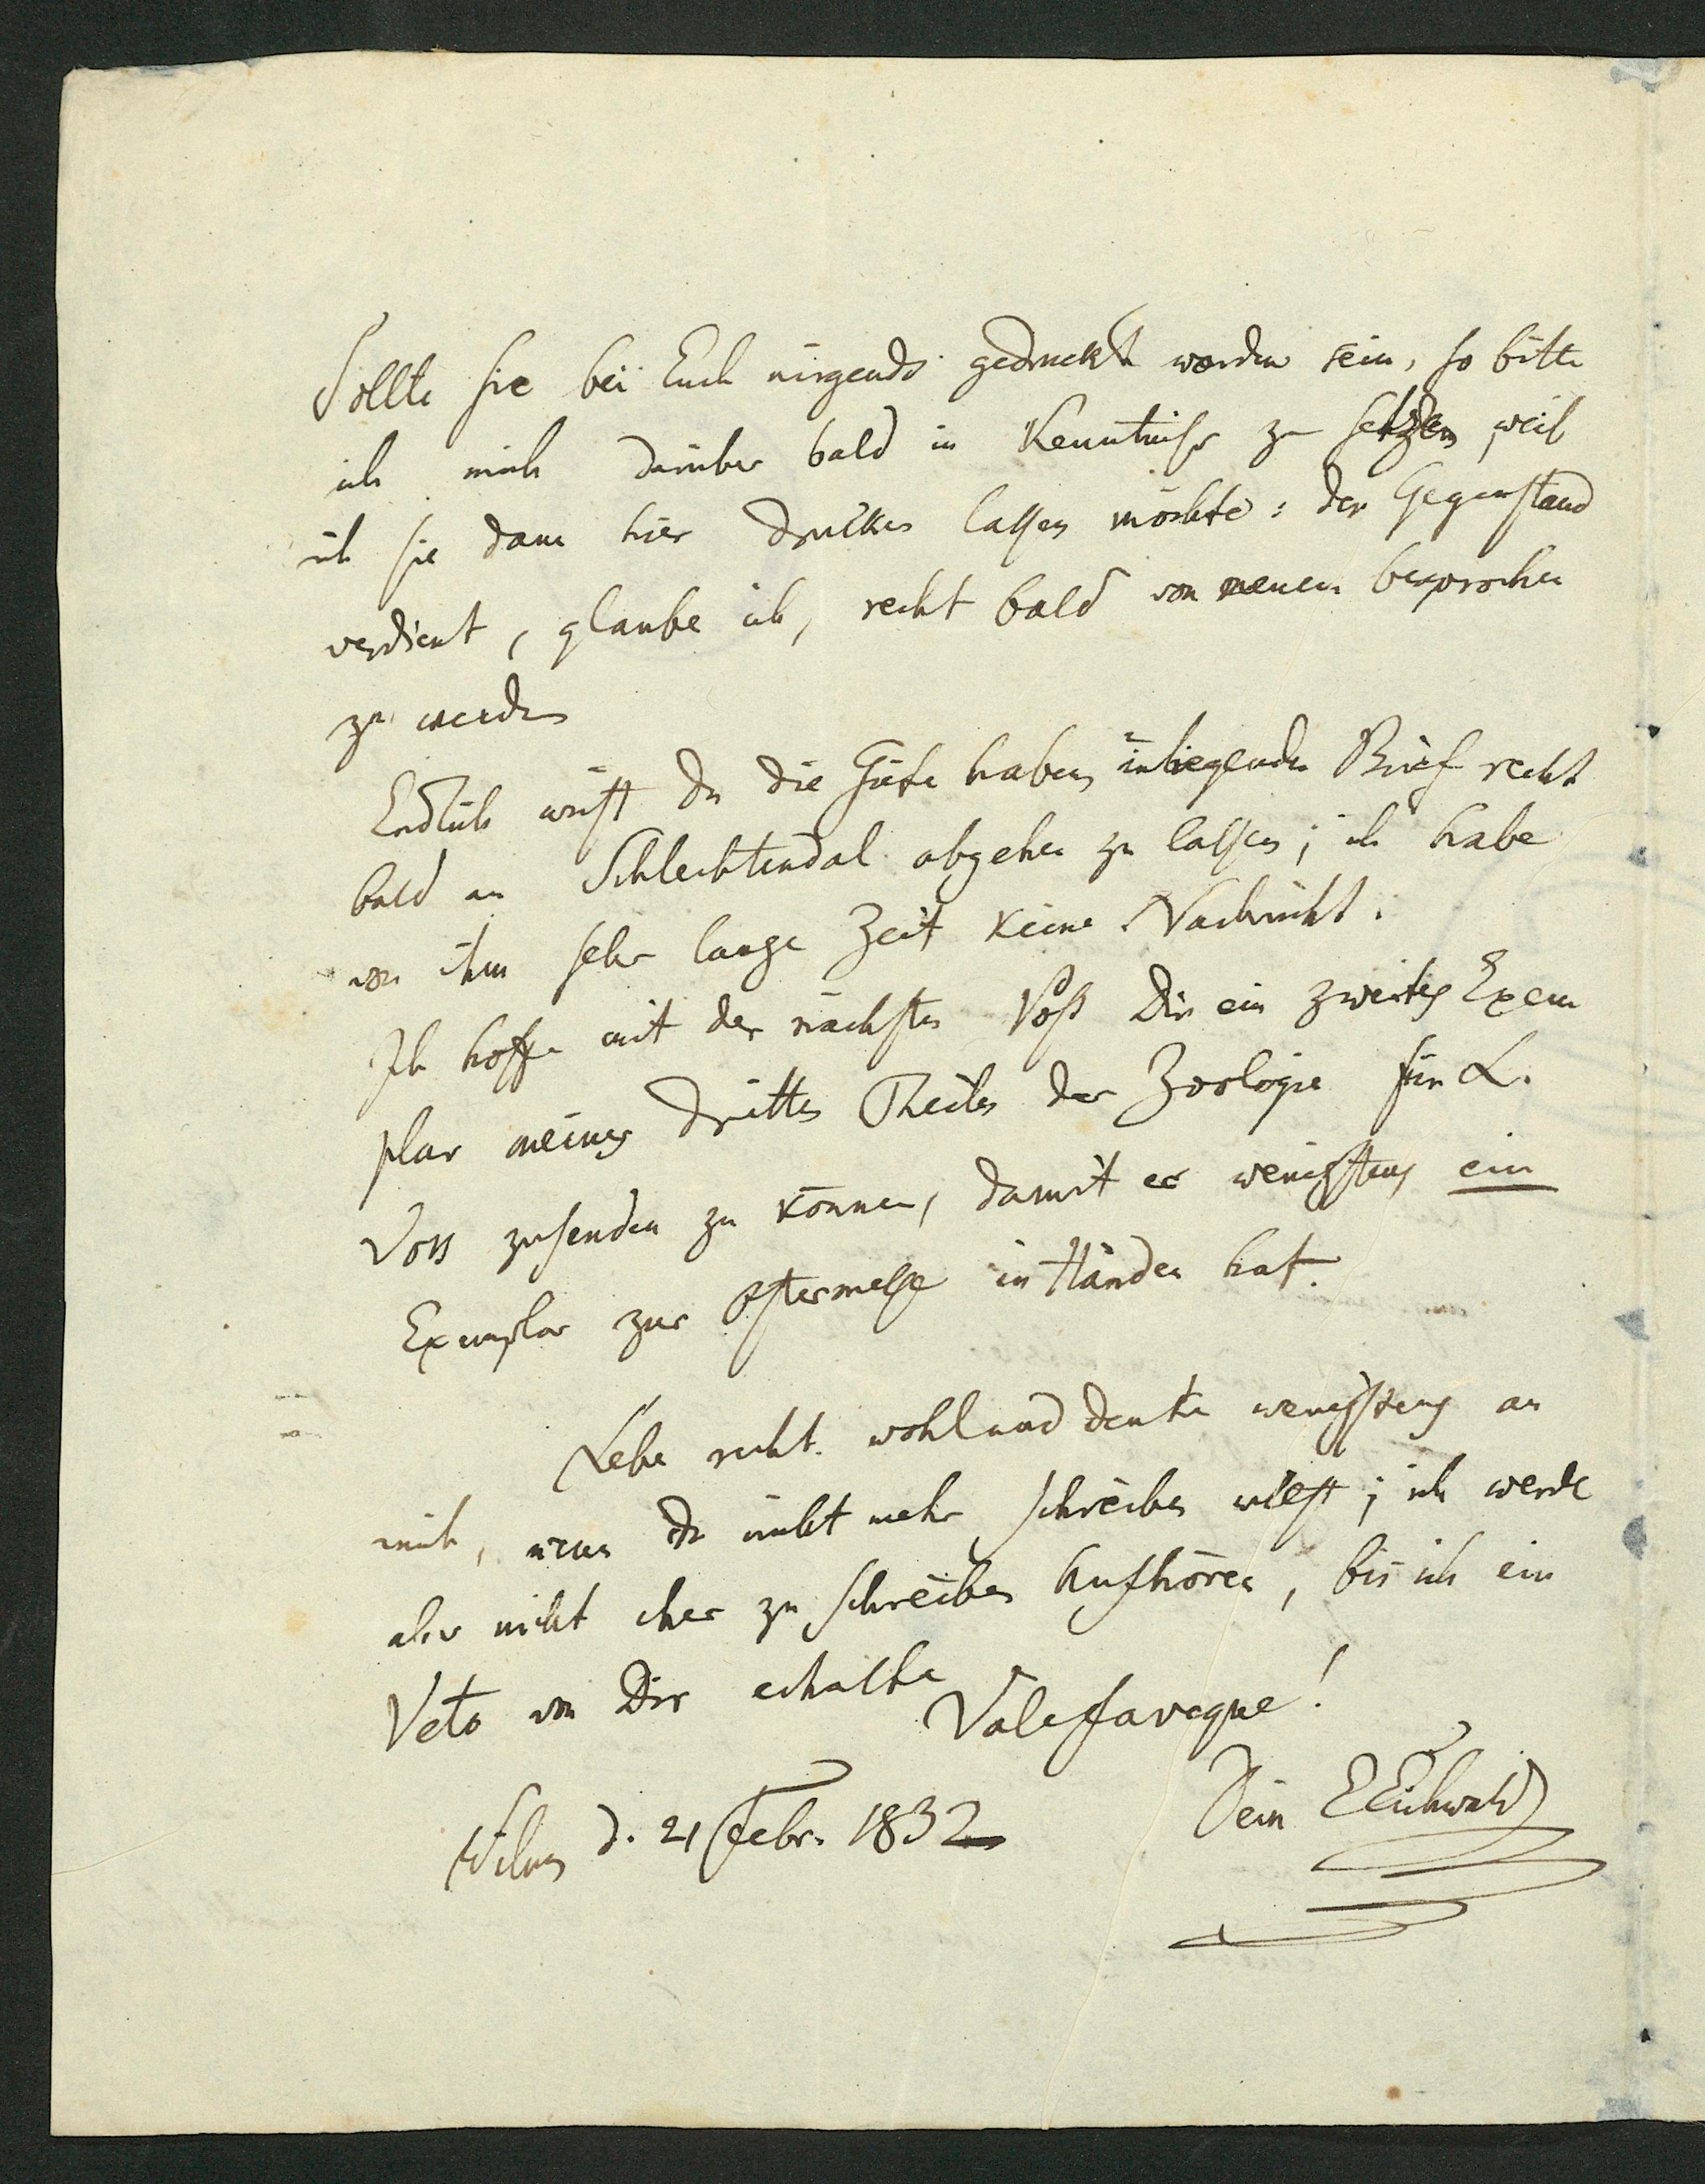 Sollte sie bei Euch nirgends gedruckt worden sein, so bitte
ich mich darüber bald in Kenntniss zu setzen, weil
ich sie dann hier drucken lassen möchte: der Gegenstand
verdient, glaube ich, recht bald von neuem besprochen
zu werden
Endlich wirst Du die Güte haben inliegenden Brief recht
bald an Schlechtendal abgehen zu lassen; ich habe
von ihm sehr lange Zeit keine Nachricht.
Ich hoffe mit der nächsten Post Dir ein zweites Exem
plar meines dritten Theiles der Zoologie für L.
Voss zusenden zu können, damit er wenigstens ein
Exemplar zur Ostermesse in Händen hat.
Lebe recht wohl und denke wenigstens an
mich, wenn Du nicht mehr schreiben willst; ich werde
aber nicht eher zu schreiben aufhören, bis ich ein
Veto von Dir erhalte
Vale faveque!
Dein E Eichwald
Wilna d. 21 Febr. 1832